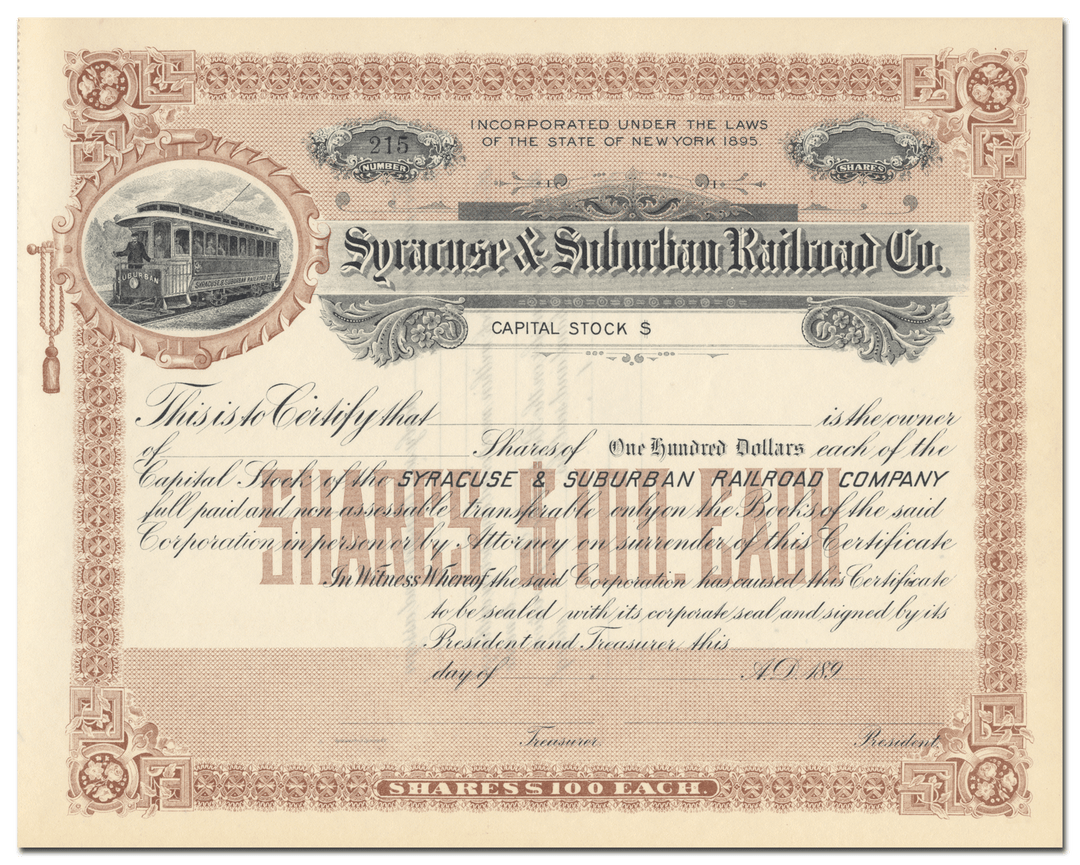 INCORPORATED UNDER THE LAWS
OF THE STATE OF NEW YORK 1895.
215
NUMBER
SHARES
Syracuse & Suburban Railroad Co.
SUBURBAN
SYRACUSE & SUBURBAN RAILROAD CO
CAPITAL STOCK $
This is to Certify that is the owner
of Shares of One Hundred Dollars each of the
Capital Stock of the SYRACUSE & SUBURBAN RAILROAD COMPANY
full paid and non-assessable transferable only on the Books of the said
Corporation in person or by Attorney on surrender of this Certificate
SHARES $100. EACH
In Witness Whereof, the said Corporation has caused this Certificate
to be sealed with its corporate seal and signed by its
President and Treasurer, this
day of A.D. 189
Treasurer. President.
SHARES $100 EACH.